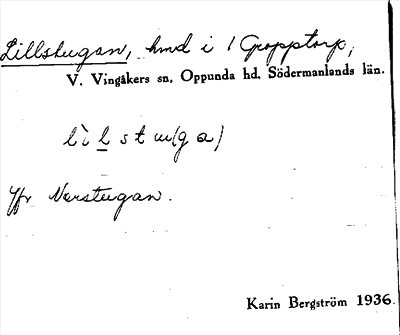 Lillstugan, hmd i 1 Gropptorp,
V. Vingåkers sn, Oppunda hd, Södermanlands län.
lìlstu(ga)
Jfr Norstugan.
Karin Bergström 1936.